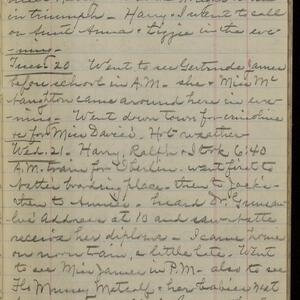 in triumph – Harry & I went to call
on Aunt Anna & Lizzie in the eve-
ning.
Tues. 20 Went to see Gertrude James
before school in A.M. – she & Miss Mc
came around here in eve-
ning – Went down town for
for Miss Davies. Hot weather
Wed. 21. Harry, Ralph & I took 6:40
A.M. train for Oberlin. went first to
boarding place – then to
then to – heard Dr.
address at 10 and saw
receive her diploma – I came home
on noon train, a little late. Went
to see Miss James in P.M. – also to see
Flo Mussey Metcalf & her